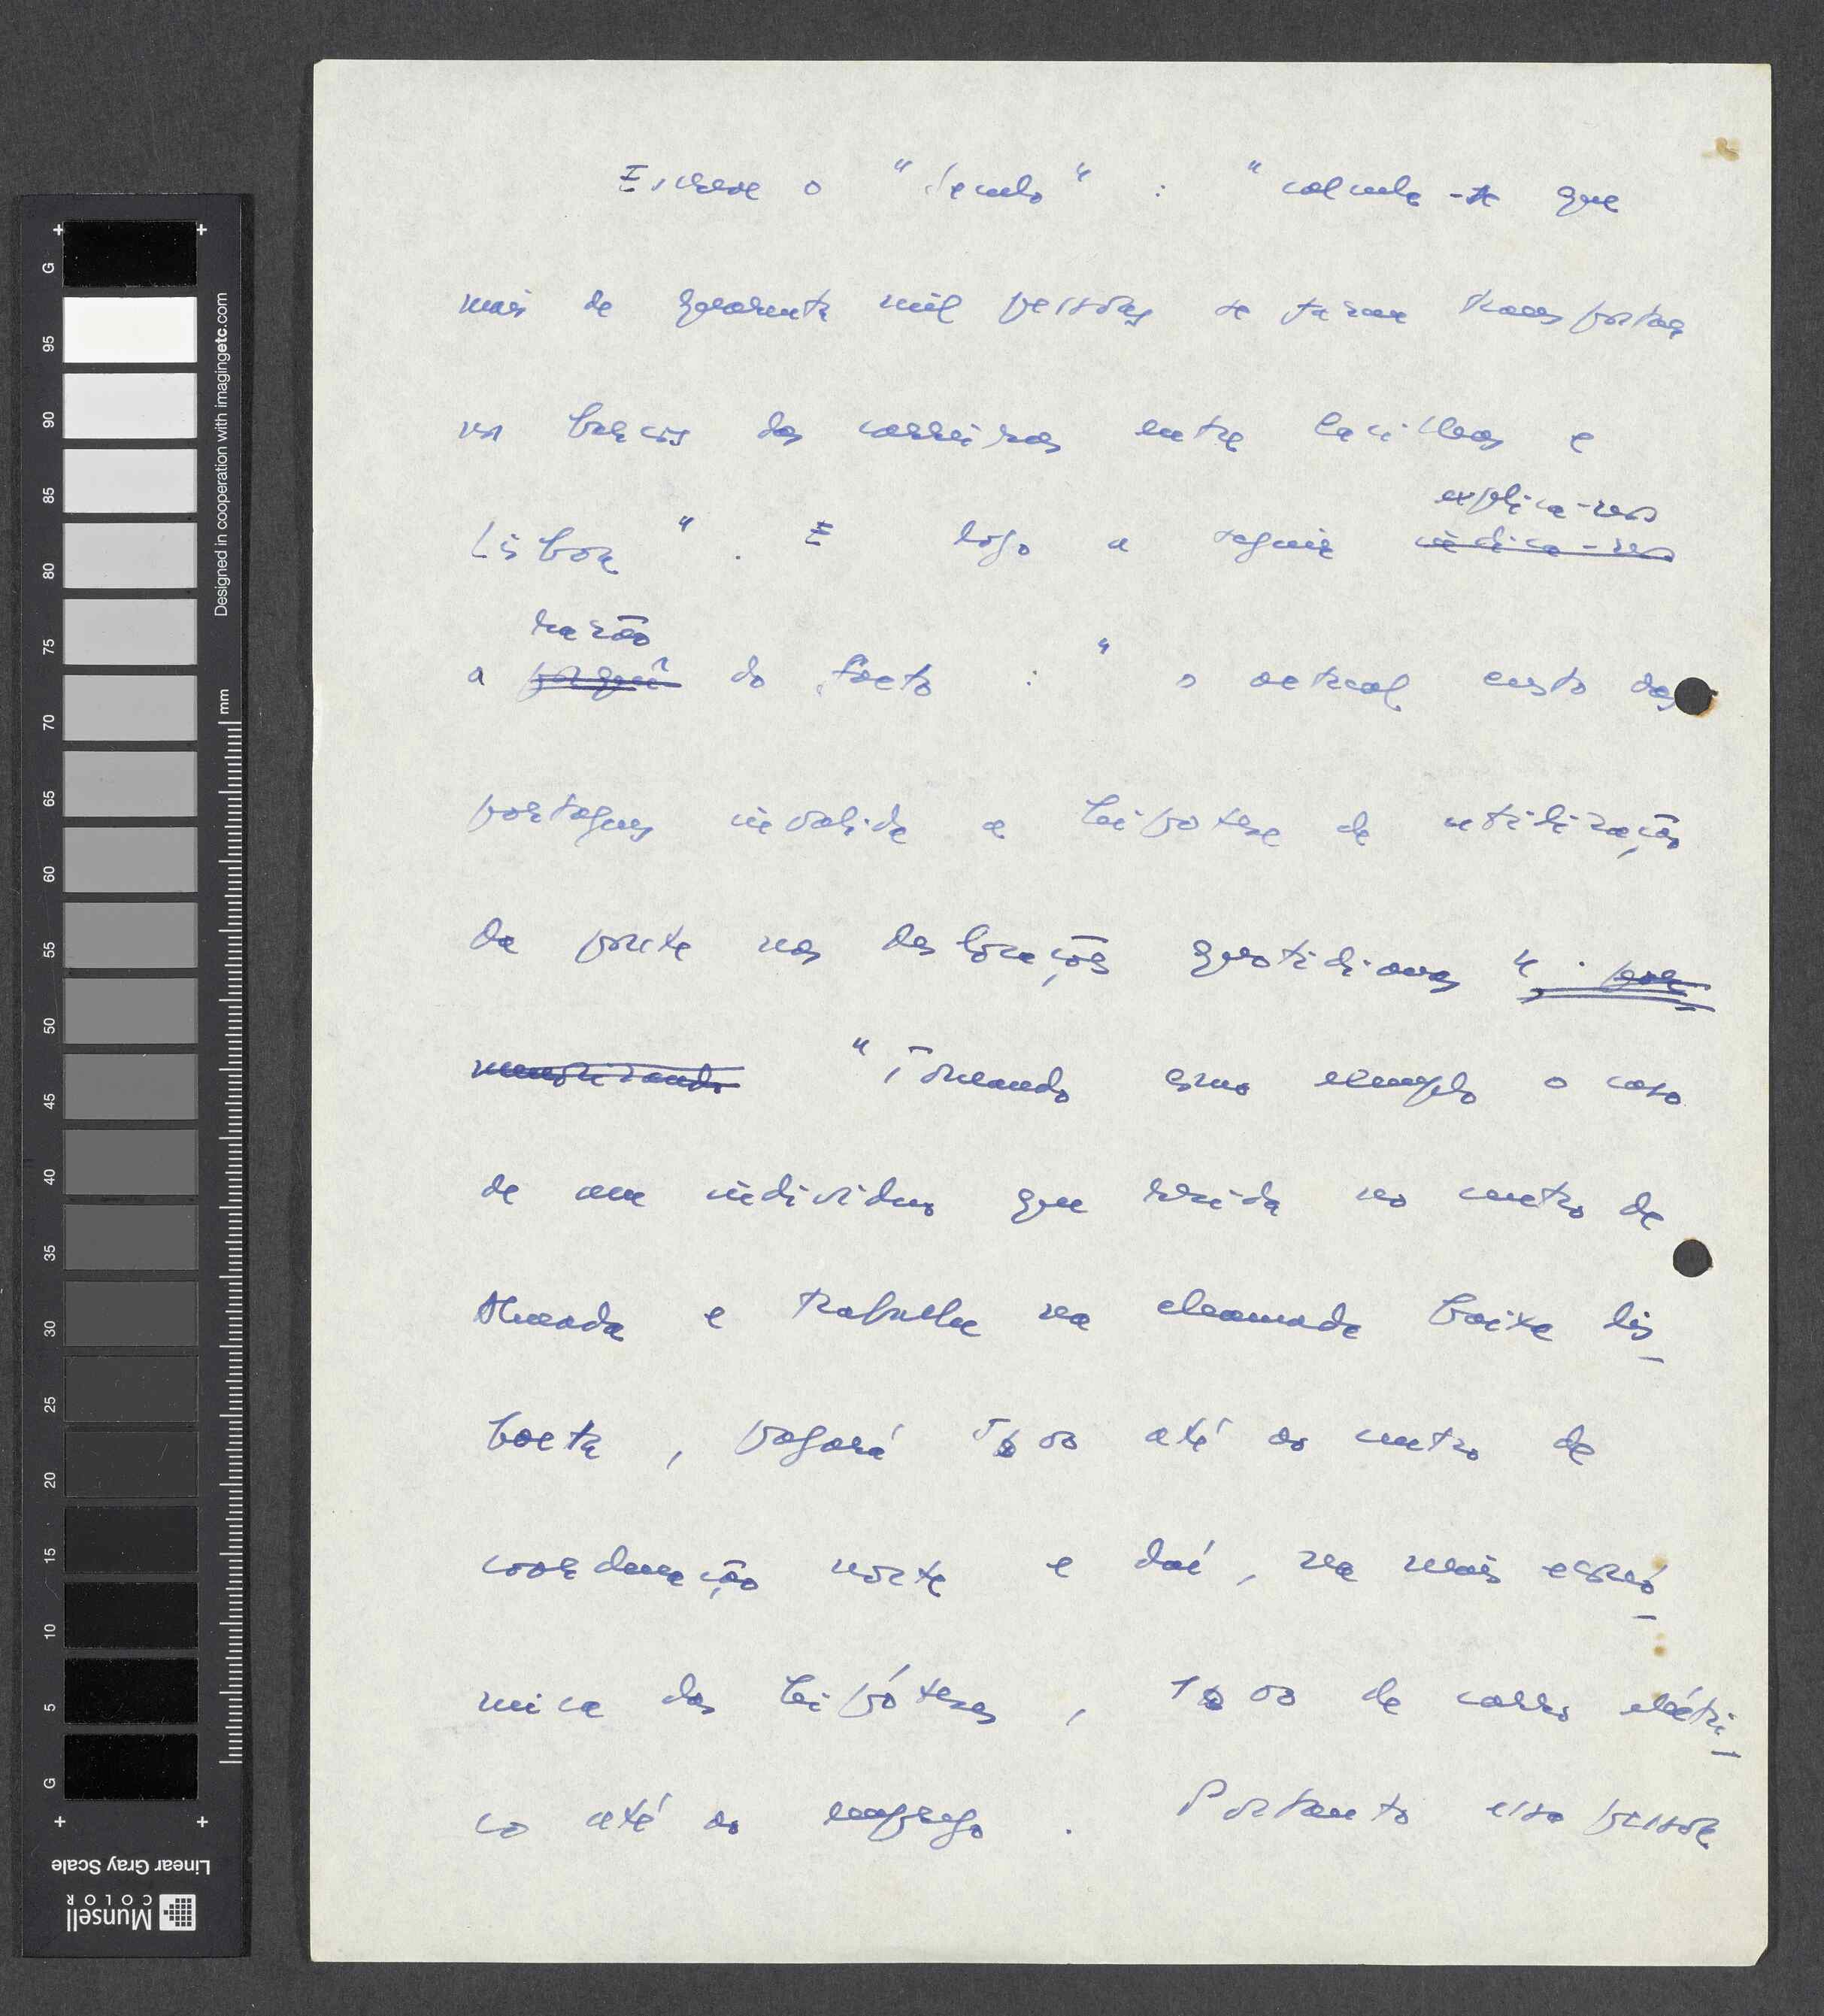 Escreve o "Século" : "calcula-se que
mais de quarenta mil pessoas se fazem transportar
nos barcos das carreiras entre Cacilhas e
explica-nos
Lisboa". E logo a seguir indica-nos
razão
a porquê do facto : "o actual custo das
portagens invalida a hipótese de utilização
da ponte nas deslocações quotidianas". por
memorizando "Tomando como exemplo o caso
de um indivíduo que resida no centro de
Almada e trabalhe na chamada baixa lis_
boeta, pagará 5$00 até ao centro de
coordenação norte e daí, na mais econó_
mica das hipóteses, 1$00 de carro eléctri_
co até ao emprego. Portanto essa pessoa
G
95
90
85
80
75
70
65
60
55
50
45
40
35
30
25
20
15
10
5
G
mm
Designed in cooperation with imagingetc.com
Linear Gray Scale
Munsell
COLOR